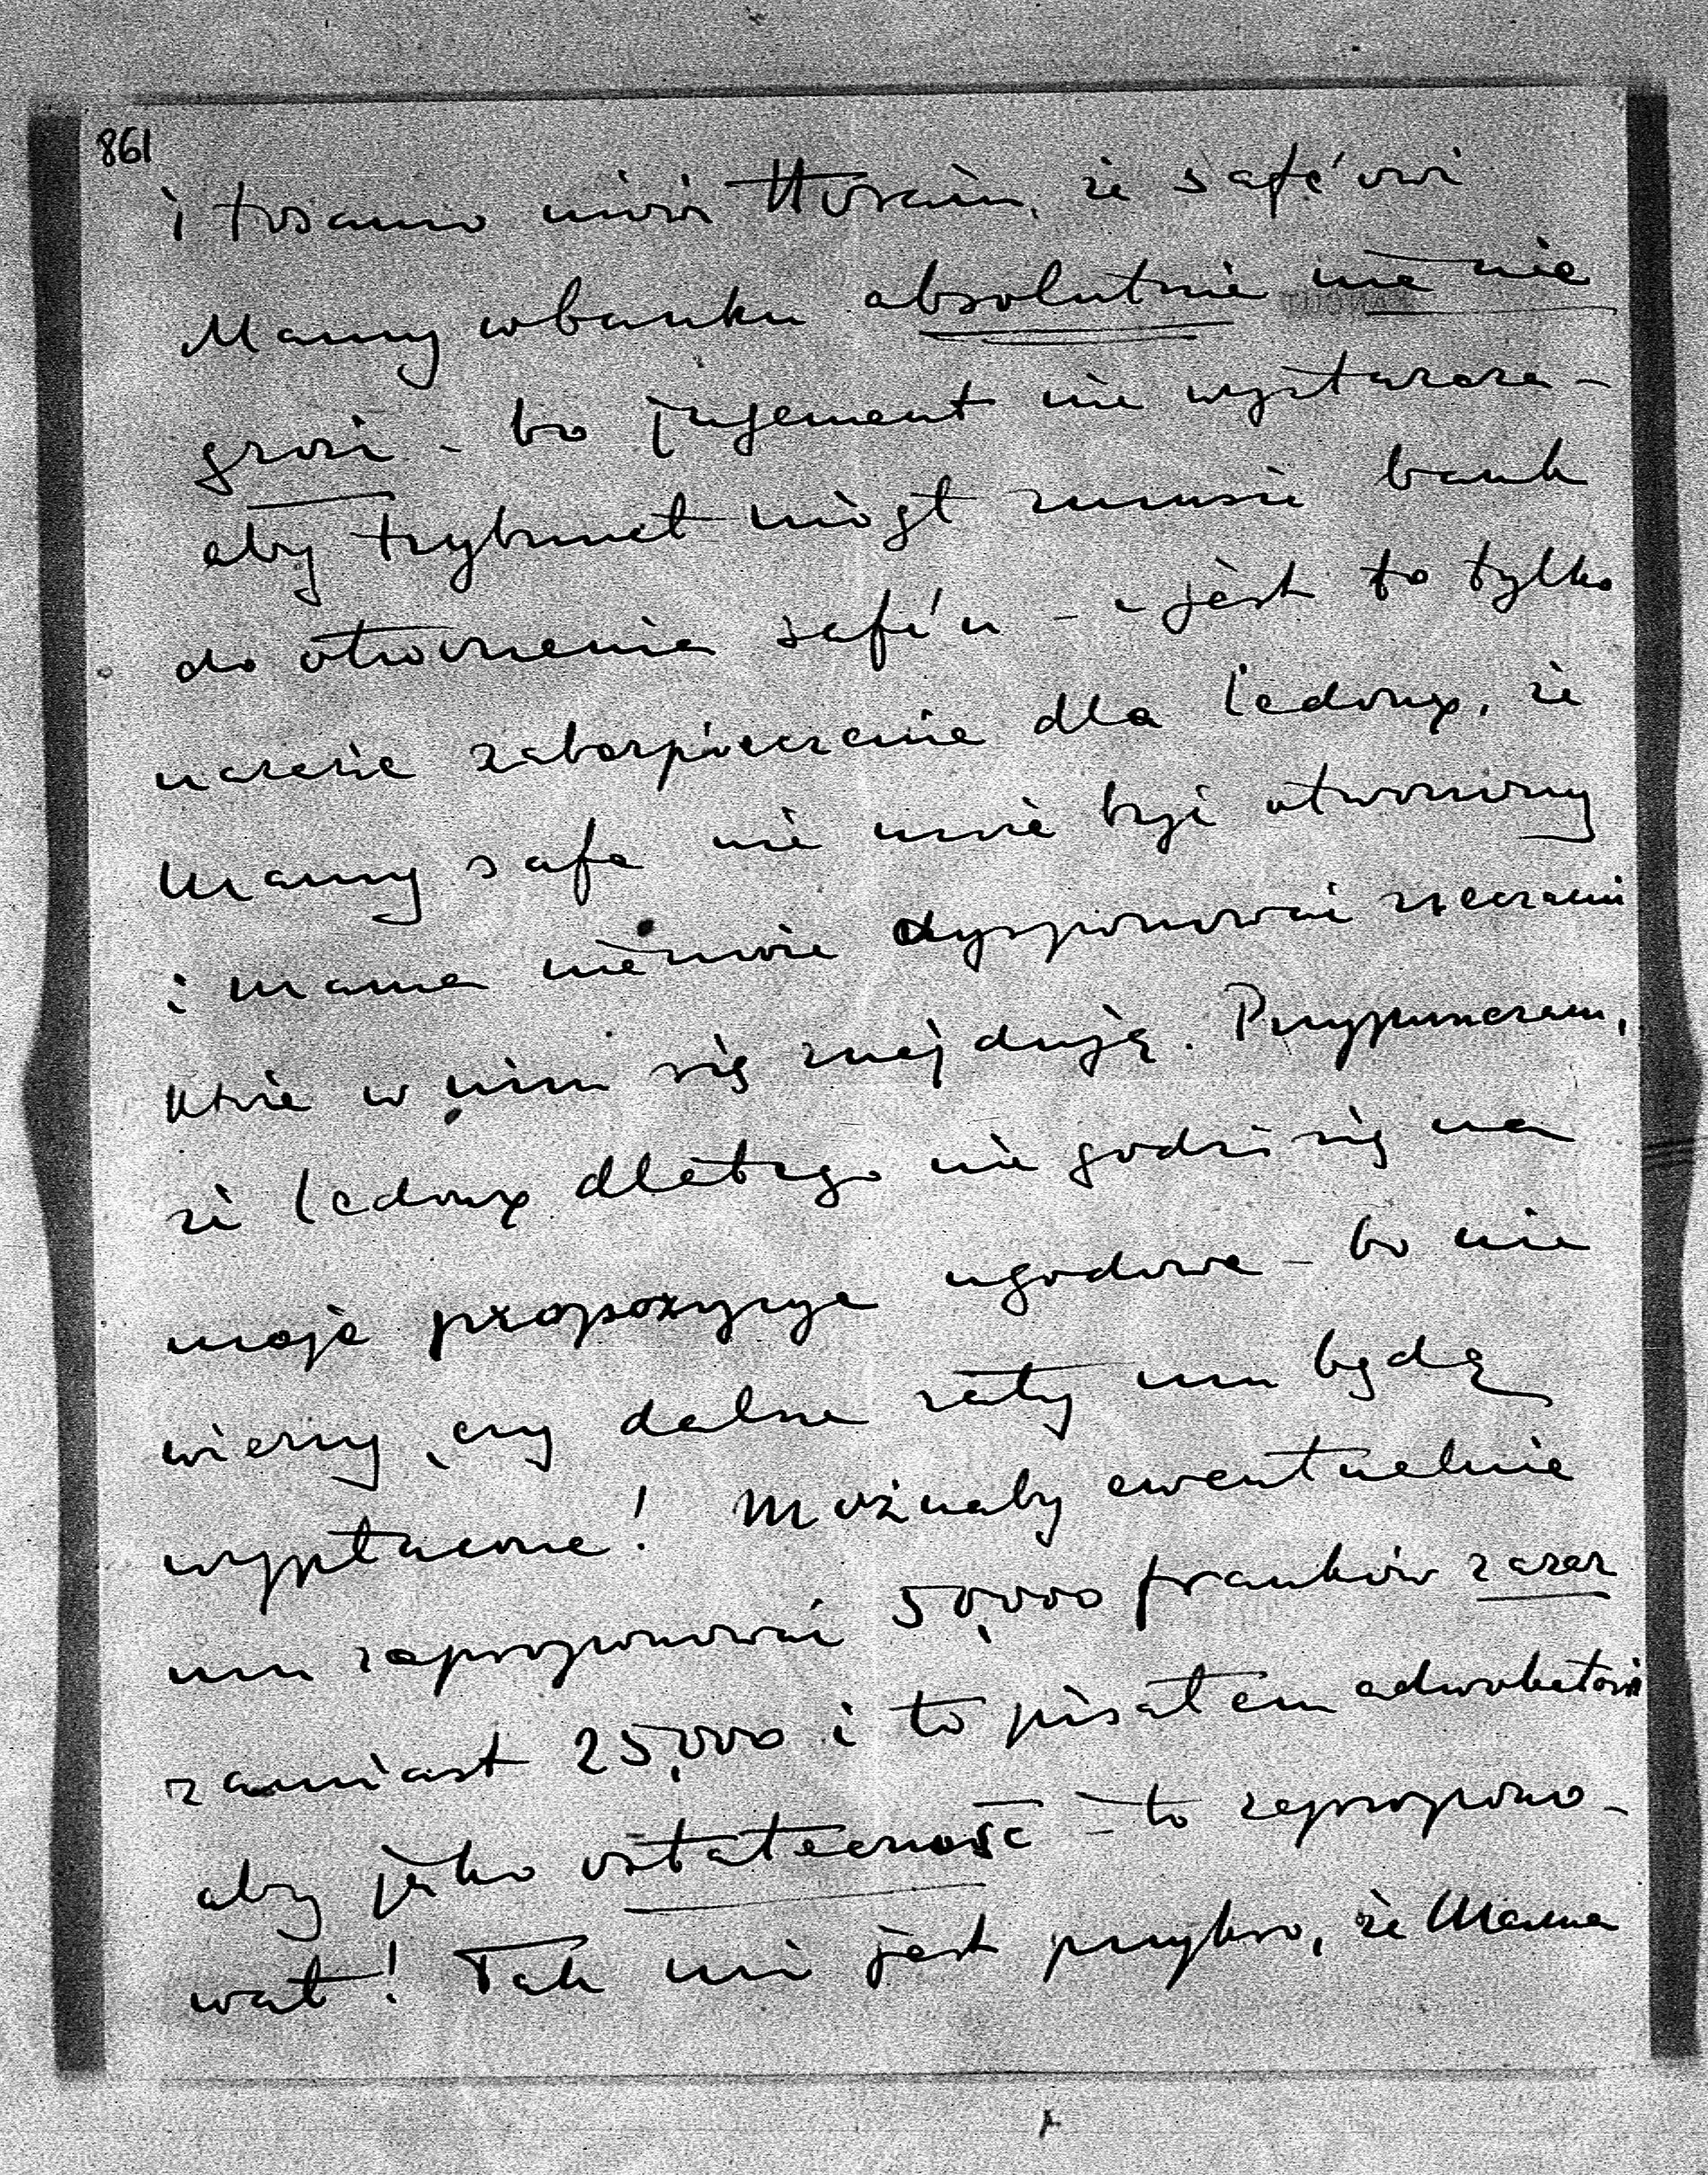 861
i tosamo mówi Hvrain, że safe'owi
Mamy w banku absolutnie nic nie
grozi - bo jugement nie wystarcza -
aby trybunał mógł zmusić bank
do otworzenia safe'u - i jest to tylko
w czasie zabezpieczenie dla Ledoux, że
Mamy safe nie może być otworzony
i mama nie może dysponować rzeczami
które w nim się znajdują. Przypuszczam,
że Ledoux dlatego nie godzi się na
moje propozycye ugodowe - bo nie
wierzy, czy dalsze raty mu będą
wypłacone! Możnaby ewentualnie
mu zaproponować 50,000 franków zaraz
zamiast 25,000 i to pisałem adwokatowi
aby jako ostateczność - to zapropono-
wał! Tak mi jest przykro, że Mama